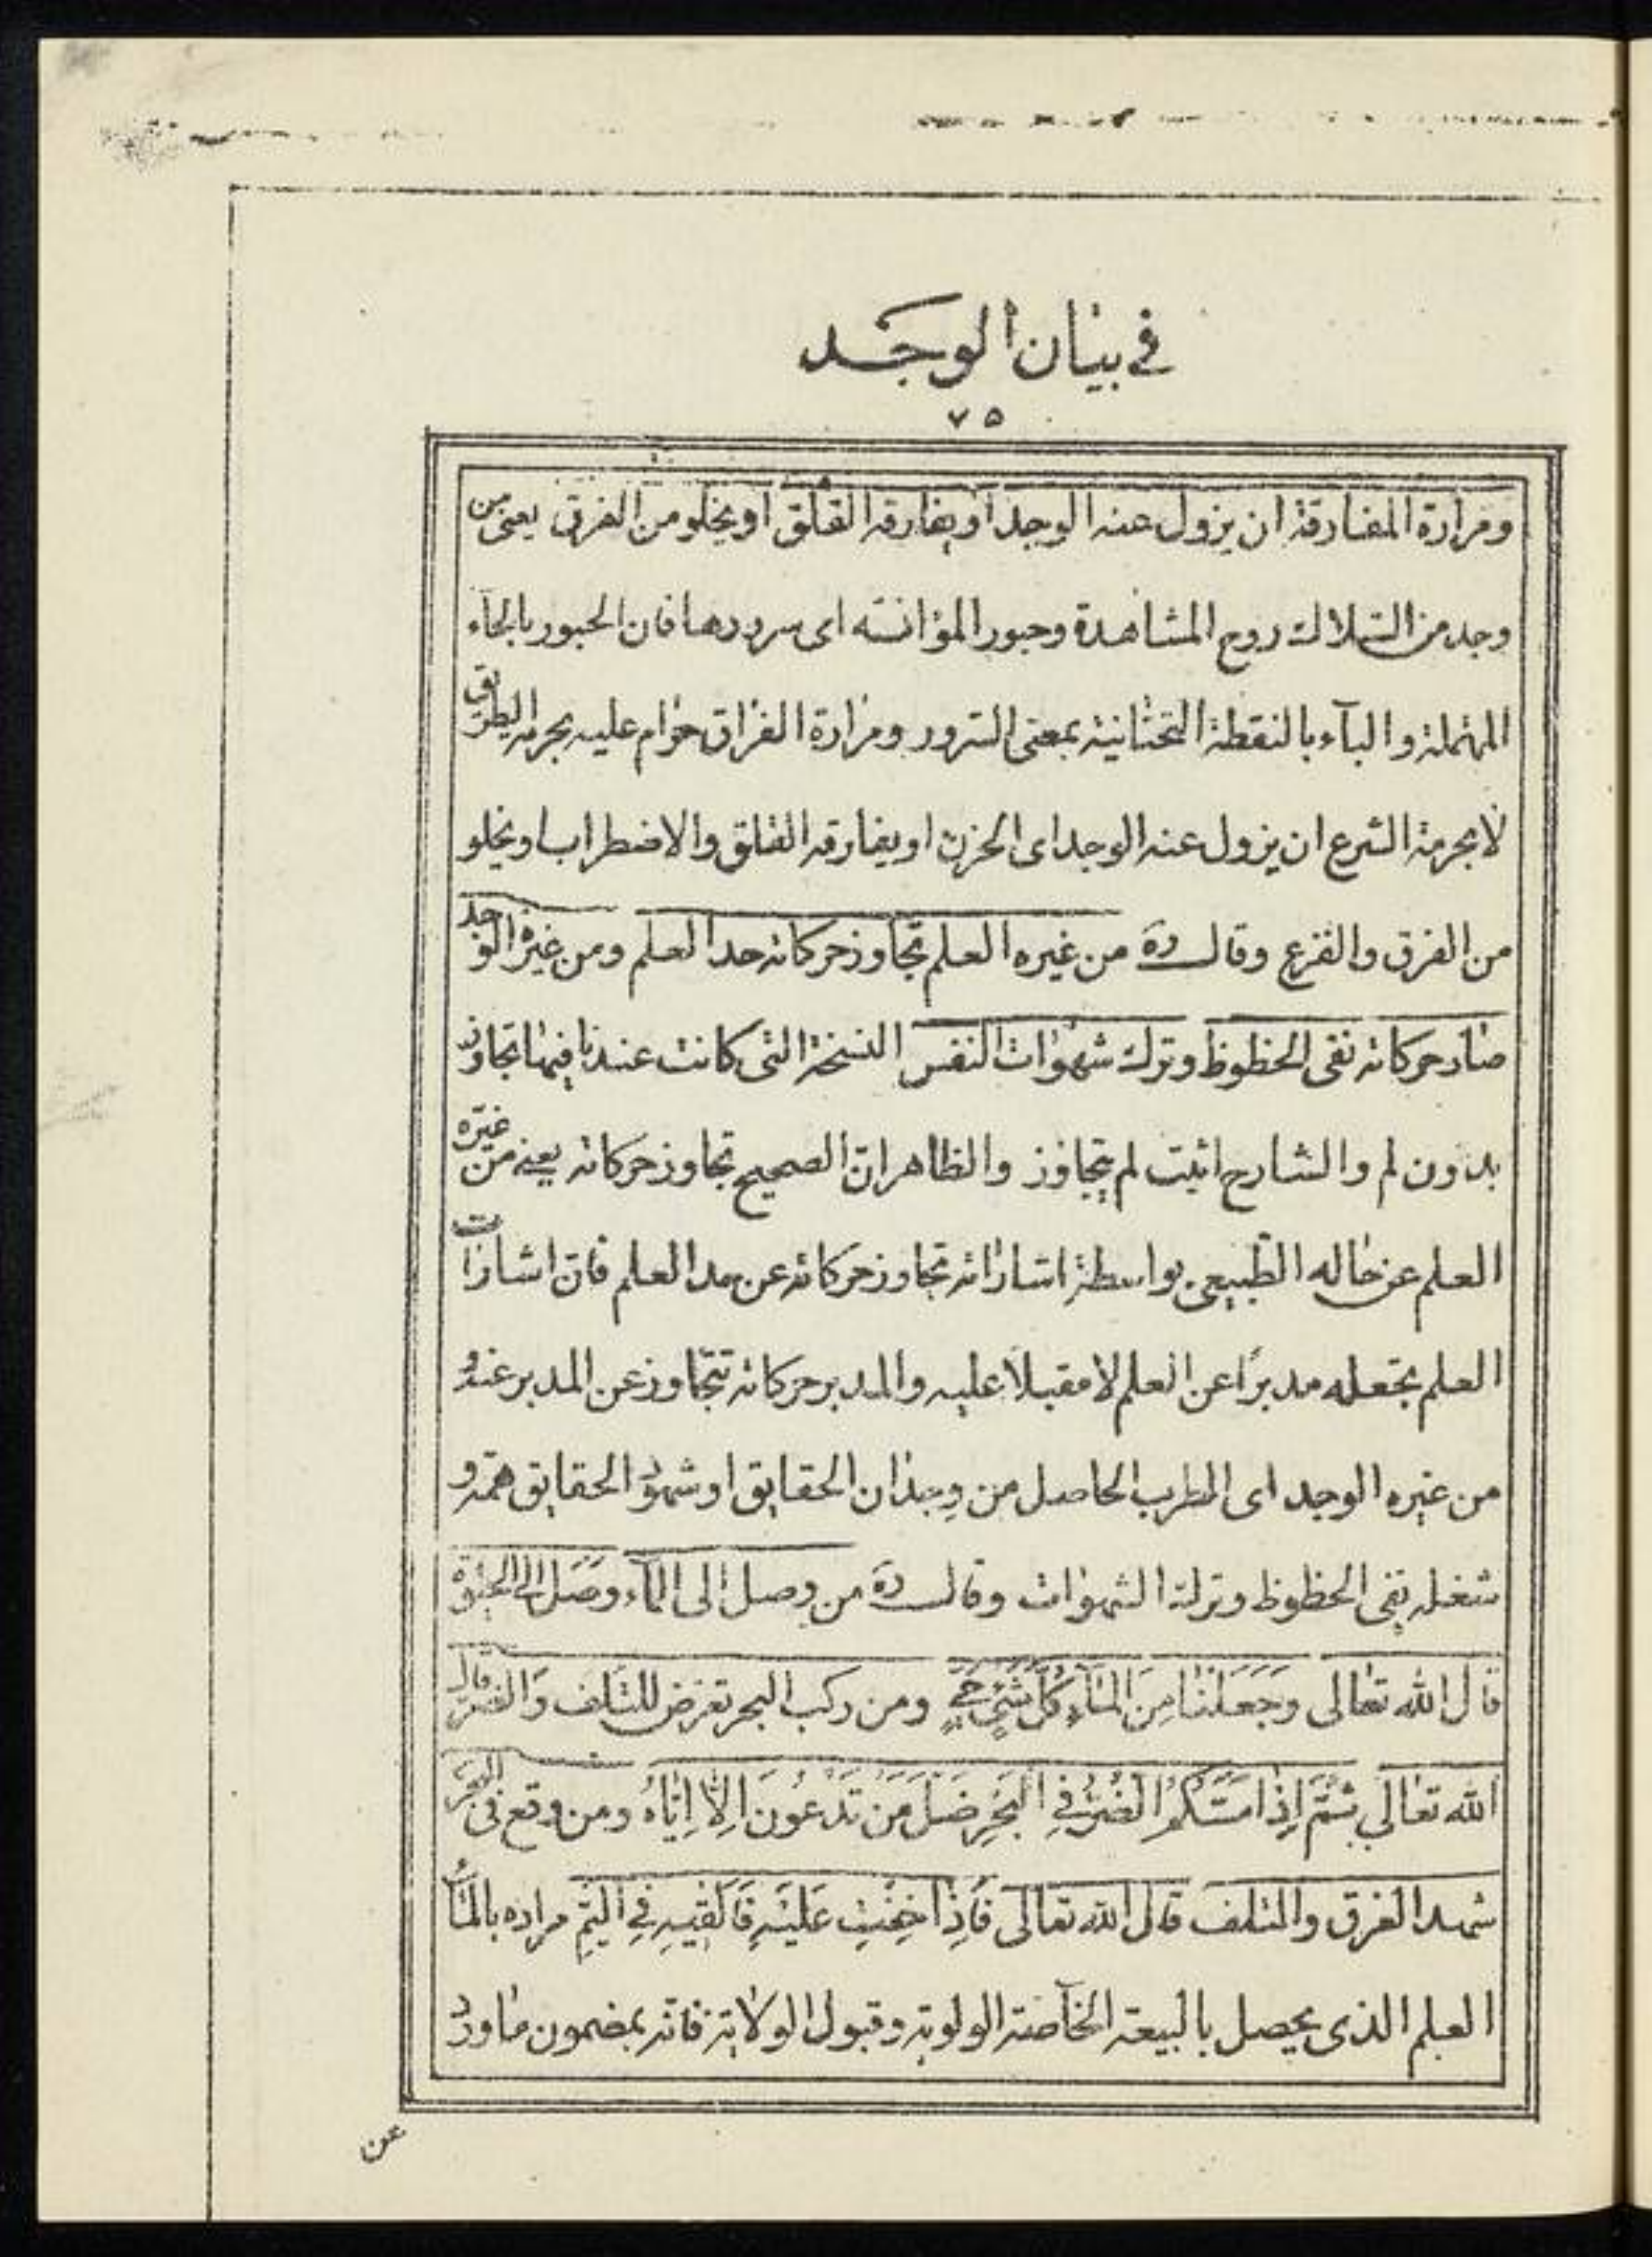 في بيان الوجد
٧٥
ومرارة المفارقة ان يزول عنه الوجد او يفارقه القلق او يخلو من الفرق يعنى من
وجد من السلاك روح المشاهدة وحبور المؤانسه اى سرورها فان الحبور بالحاء
المهملة والبآء بالنقطة التحتانية بمعنى السرور ومرارة الفراق حرام عليه بحرمة الطريق
لا بحرمة الشرع ان يزول عنه الوجد اى الحزن او يفارقه القلق والاضطراب او يخلو
من الفرق والفزع وقال ره من غيره العلم تجاوز حركاته حد العلم ومن غيره الوجد
صار حركاته نفى الحظوظ وترك شهوات النفس النسخة التى كانت عندنا فيها تجاوز
بدون لم والشارح اثبت لم يتجاوز والظاهر ان الصحيح تجاوز حركاته يعنى من غيره
العلم عن حاله الطبيعى بواسطة اشاراته تجاوز حركاته عن مد العلم فان اشارات
العلم تجعله مدبرا عن العلم لا مقبلا عليه والمدبر حركاته تتجاوز عن المدبر عنه و
من غيره الوجد اى الطرب الحاصل من وجدان الحقايق او شهود الحقايق همه و
شغله نفى الحظوظ وترك الشهوات وقال ره من وصل الى المآء وصل الى الحيوة
قال الله تعالى وَجَعَلْنَا مِنَ المَآءِ كُلَّ شَىْءٍ حَىٍّ ومن ركب البحر تعرض للتلف والضر قال
الله تعالى ثُمَّ اِذا مَسَّكُمُ الضُّرُّ فِى البَحْرِ ضَلَّ مَنْ تَدْعُونَ اِلّا اِيّاهُ ومن وقع فى البحر
شهد الغرق والتلف قال الله تعالى فَاِذا خِفْتِ عَلَيْهِ فَاَلْقِيهِ فِى اليَمِّ مراده بالمآء
العلم الذى يحصل بالبيعة الخآصة الولوية وقبول الولاية فانه بمضمون ما ورد
عن